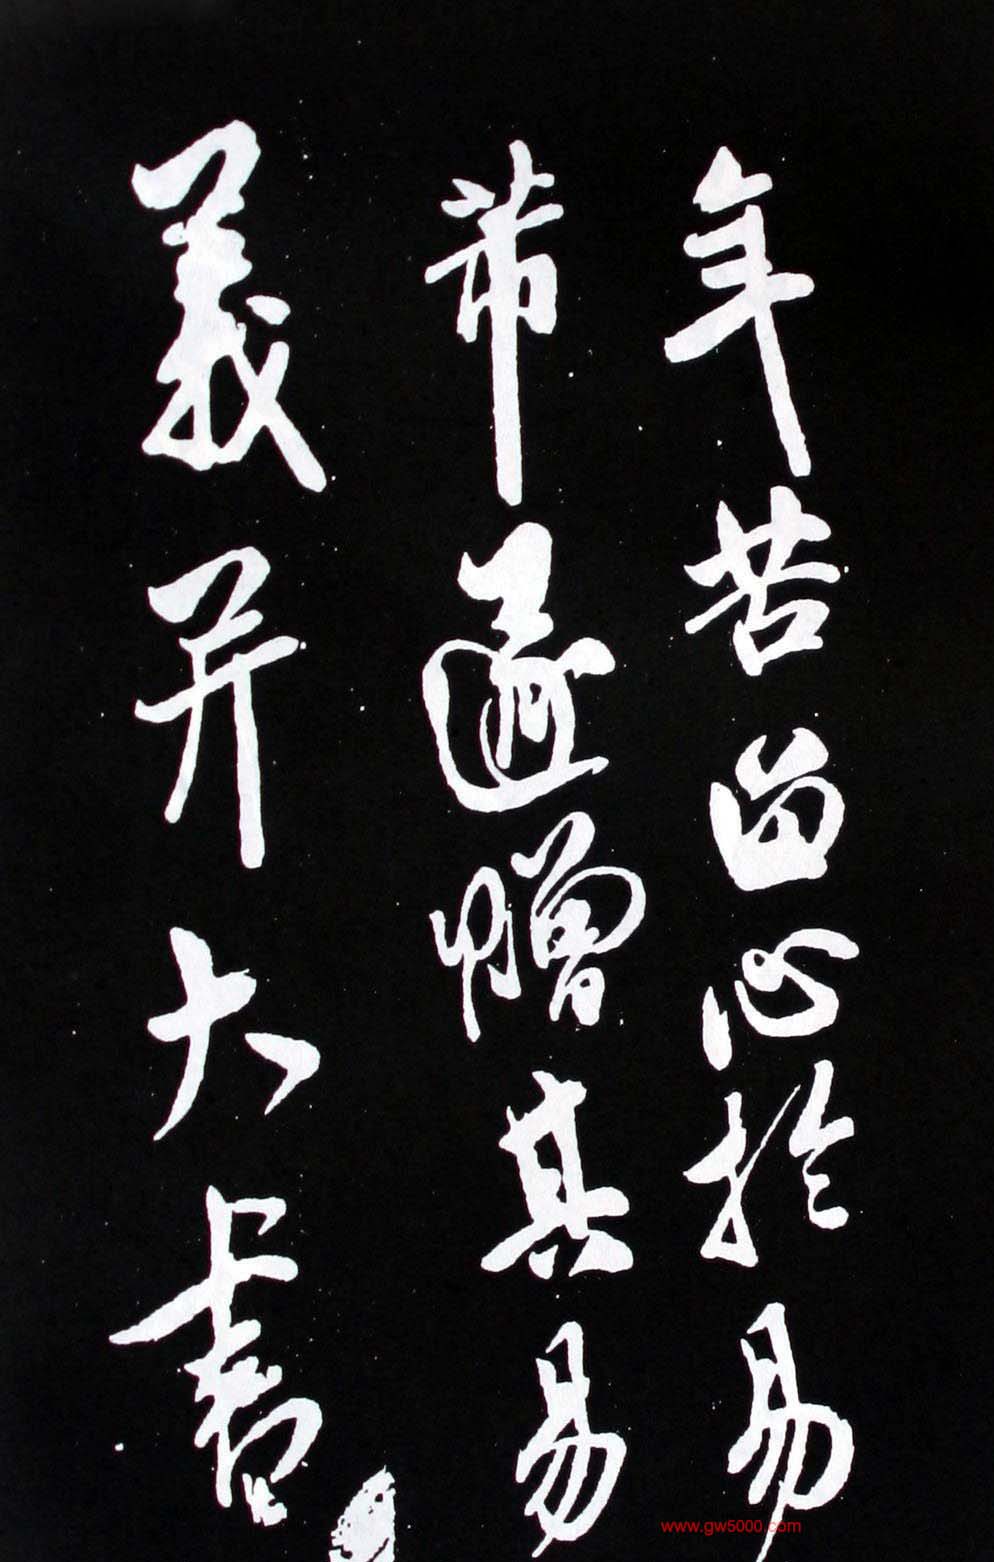 年苦留心於易
芾遂贈其易
義并大書
www.gw5000.com